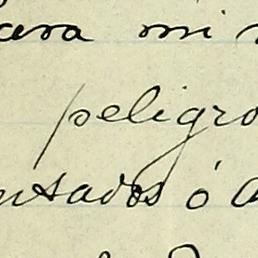 ara mi
peligro
ntados ó a